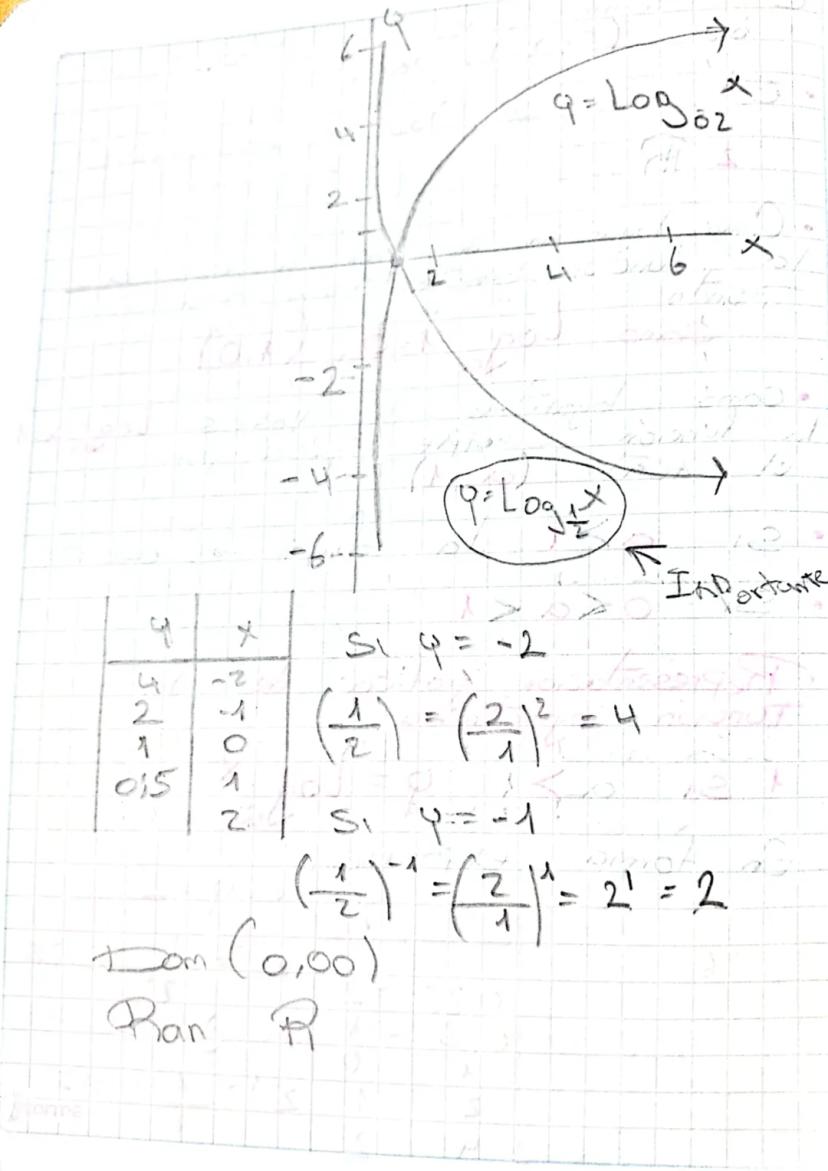 y
6
4
2
y = Log 02 x
2 4 6 x
-2
-4
y = Log 1/2 x
-6
Importante
y x
4 -2
2 -1
1 0
0,5 1
2
Si y = -2
(1/2) = (2/1)^2 = 4
Si y = -1
(1/2)^-1 = (2/1)^1 = 2^1 = 2
Dom (0,00)
Ran R